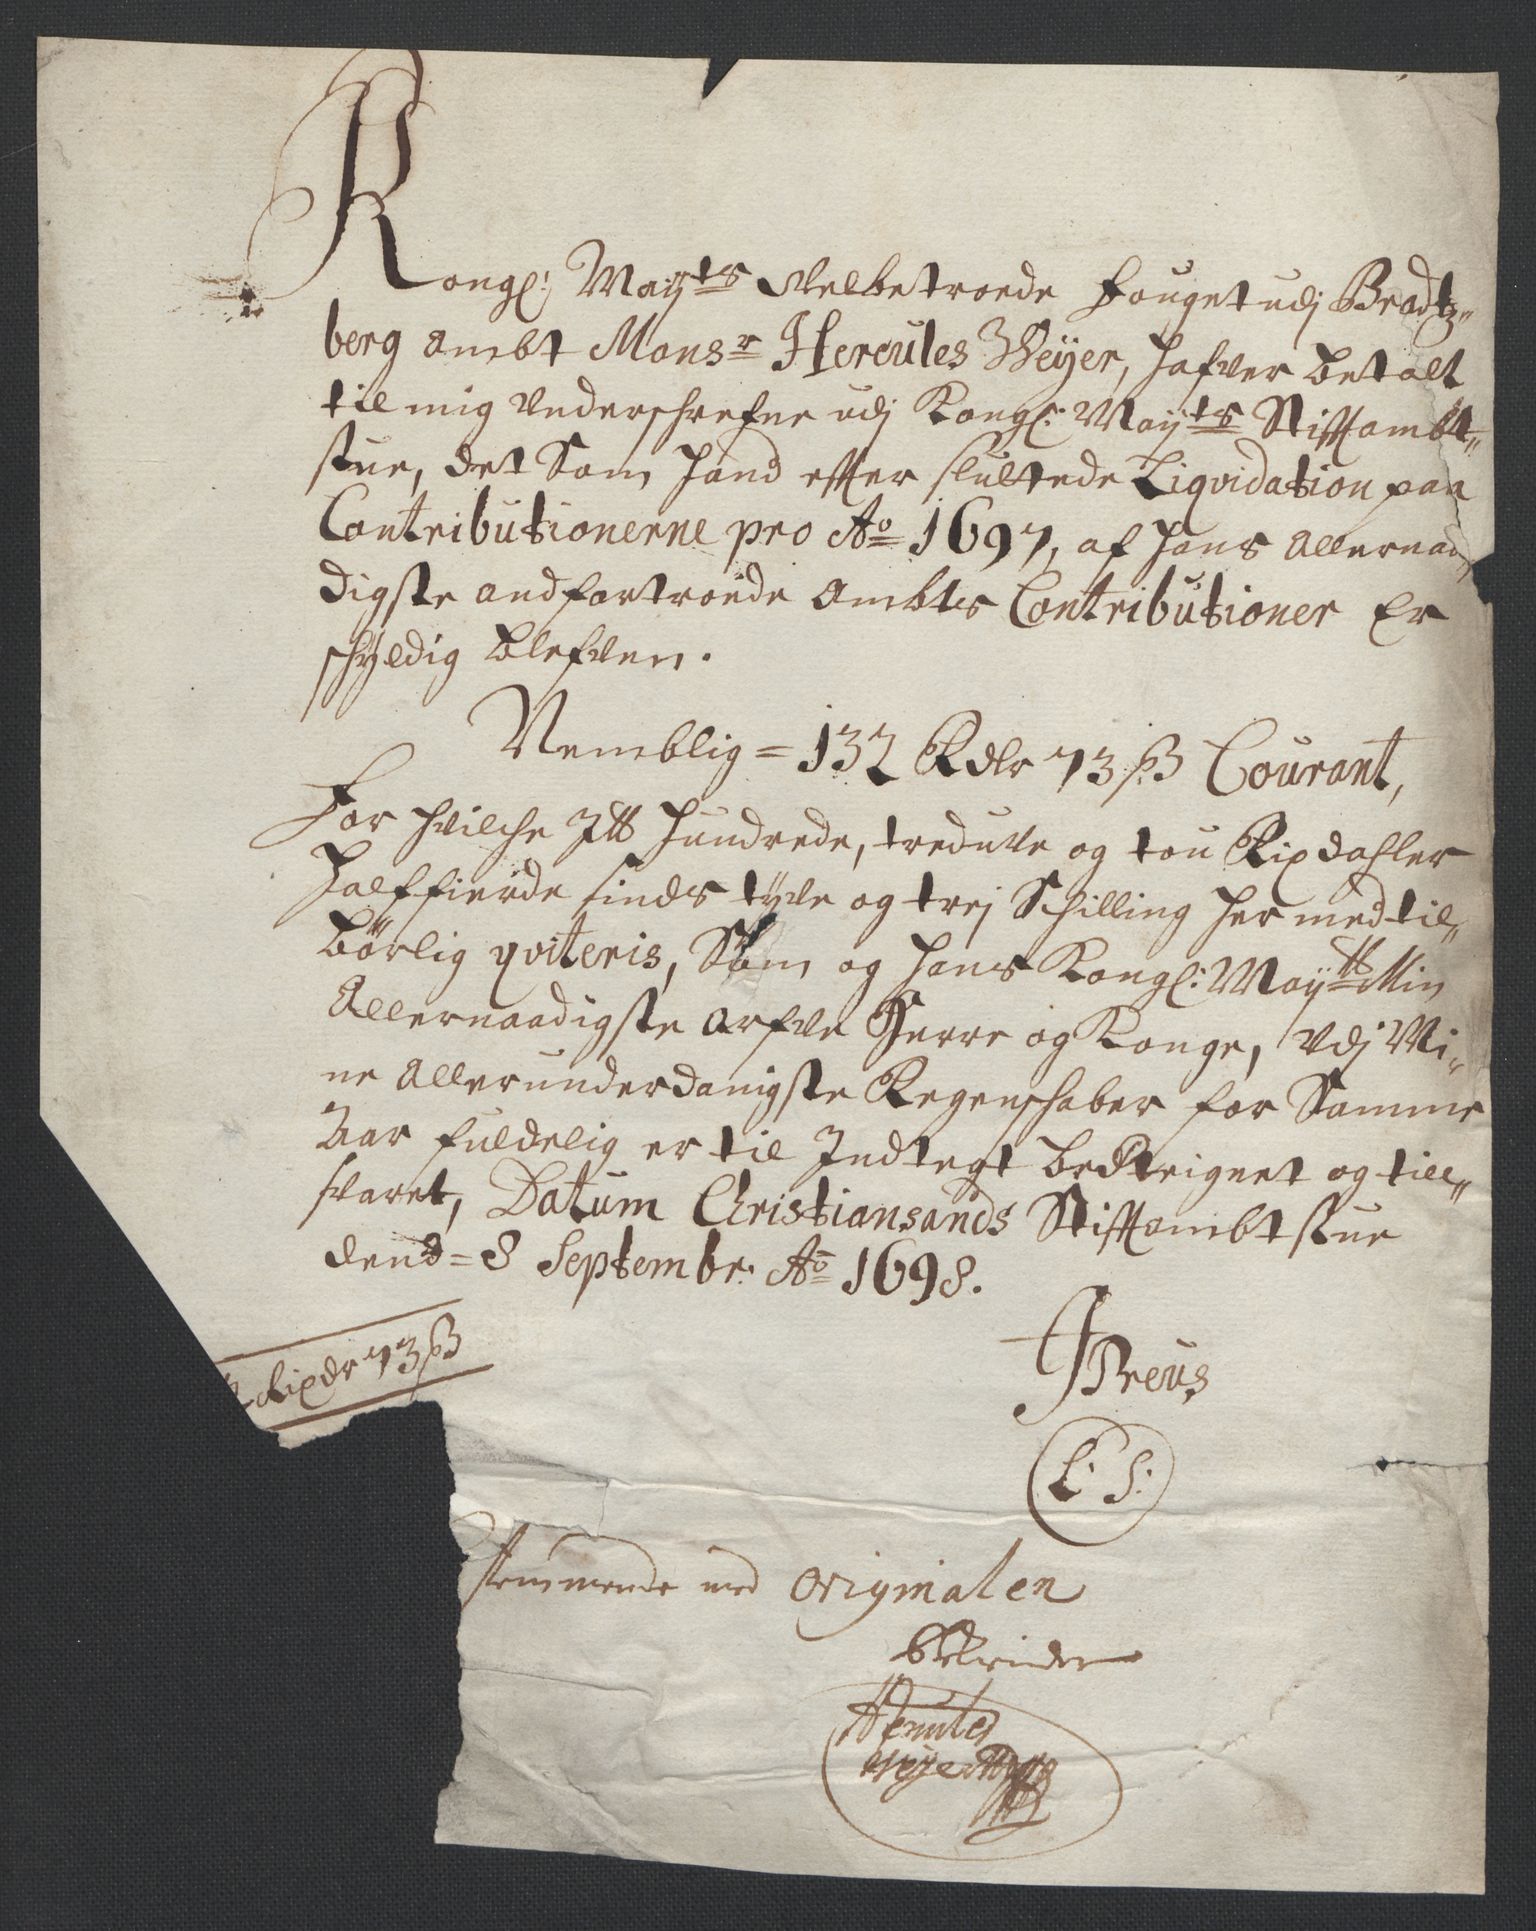 Kongl: Maÿts Velbetroede Fouget udj Bradtz„
berg Ambt Monsr Hercules Weÿer, hafver betalt
til mig underschrefne udj Kongl: Maÿts Stiftambt„
stue, det Som hand efter sluttede Liqvidation paa
Contributionerne pro Ao 1697, af hans Allernaa
digste andfortroede Ambts Contributioner Er
schÿldig blefven.
Nemblig = 132 Rdlr 73 ß Courant,
For hvilche Itt hundrede, tredufve og tou Rixdahler
halffierde sinds tÿve og trej Schilling her med til„
börlig qviteris, Som og hans Kongl: Maÿtts Min
Allernaadigste Arfve Herre og Konge, Udj Mi„
ne Allerunderdanigste Regenschaber for Samme
Aar fuldelig er til Indtegt beReignet og till„
svaret, Datum Christiansands Stiftambtstue
dend = 8 Septembr: Ao 1698.
2 Rixdr 73 ß
Preus
L: S:
stemmende med originalen
bekrider
Hercules
Weÿer